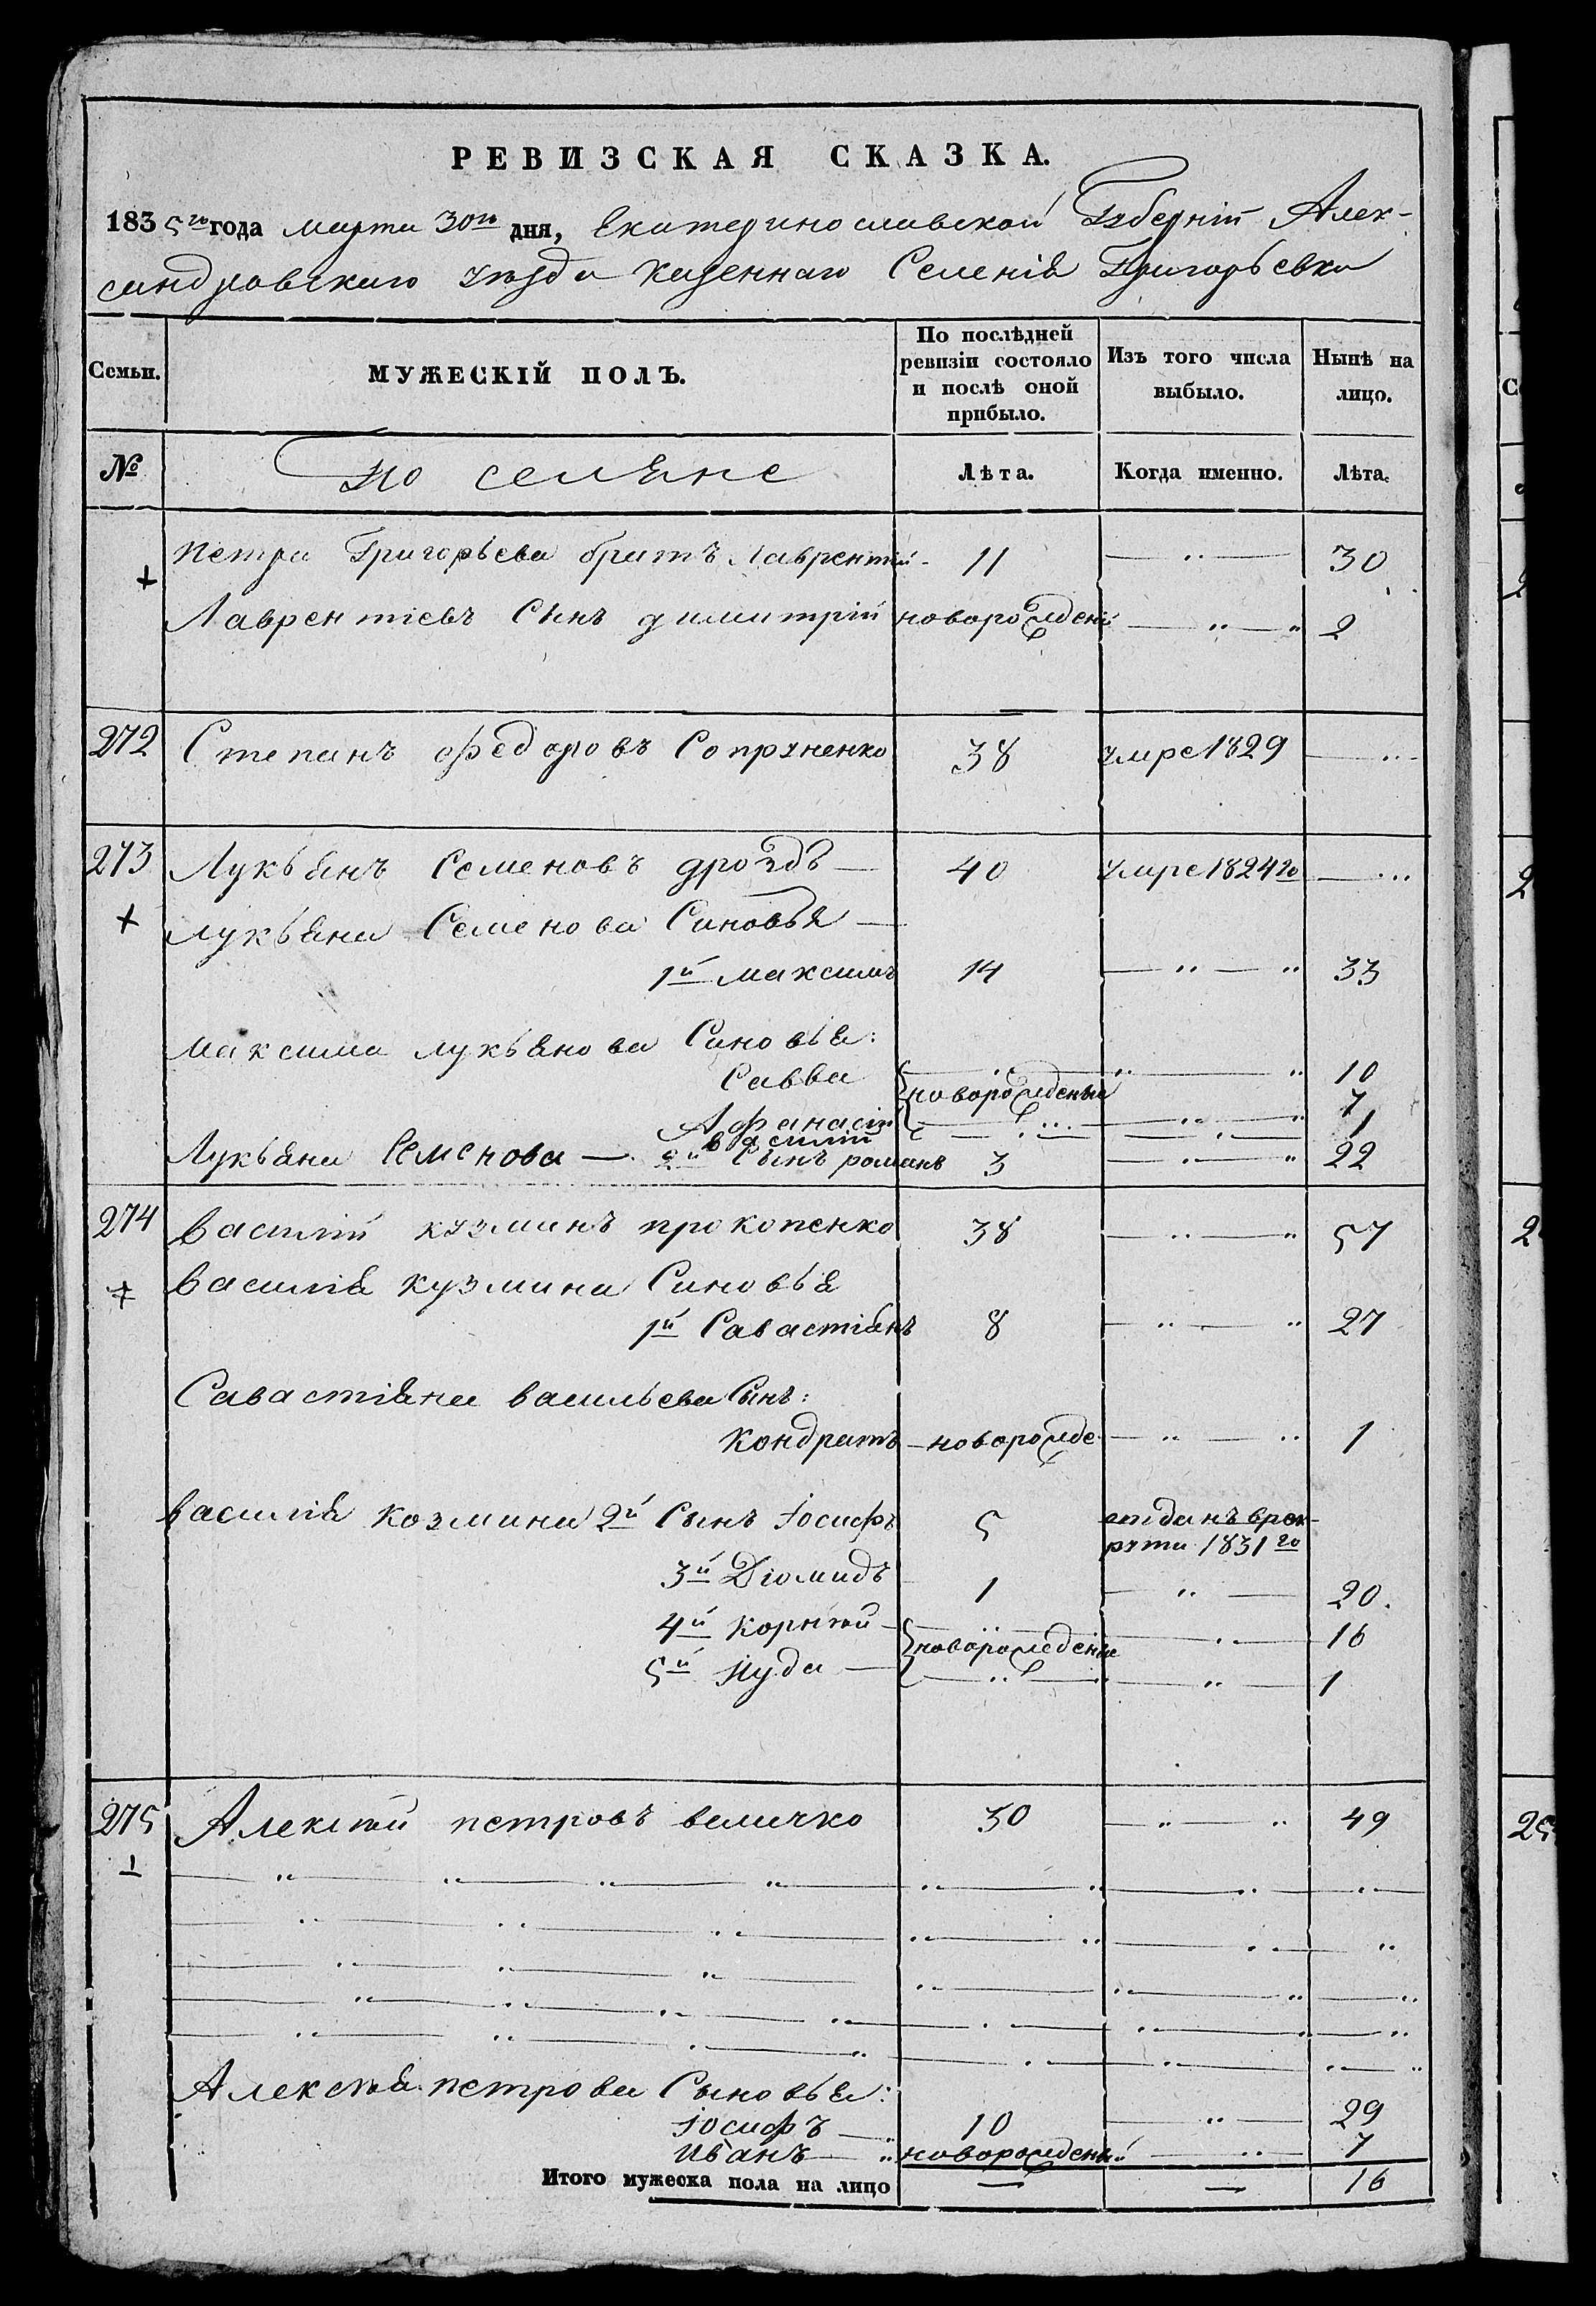 РЕВИЗСКАЯ СКАЗКА.
1835го года марта 30го дня, Екатеринославской Губерніи Алек-
сандровскаго уѣзда казеннаго Селенія Григорьевки
Семьи.
МУЖЕСКІЙ ПОЛЪ.
По послѣдней ревизіи состояло и послѣ оной прибыло.
Изъ того числа выбыло.
Нынѣ на лицо.
№
Поселяне
Лѣта.
Когда именно.
Лѣта.
+ Петра Григорьева братъ Лаврентій 11 — 30
Лаврентіевъ Сынъ димитрій новорожденій — 2
272 Степанъ федоровъ Сопруненко 38 умре 1829 —
273 Лукьянъ Семеновъ дроздъ — 40 умре 1824го —
+ Лукьяна Семенова Синовья —
1й максимъ 14 — 33
максима лукьянова Синовья:
Савва 10
новорожденыи
Афанасій 7
василій 1
Лукьяна Семенова — 2й Сынъ романъ 3 — 22
274 василій кузминъ прокопенко 38 — 57
+ василія кузмина Синовья
1й Савастіянъ 8 — 27
Савастіяна васильева Сынъ:
Кондратъ — новорожде — 1
василія козмина 2й Сынъ Іосифъ 5 отданъ врек-
рути 1831го
3й Діомидъ 1 — 20.
4й Корнѣй — 16
новорожденіе
5й Иуда — 1
275 Алексѣй петровъ величко 30 — 49
Алексѣя петрова Сыновья:
Іосифъ — 10 — 29
Иванъ — новорожденъ — 7
Итого мужеска пола на лицо — — 16
2
2
2
25